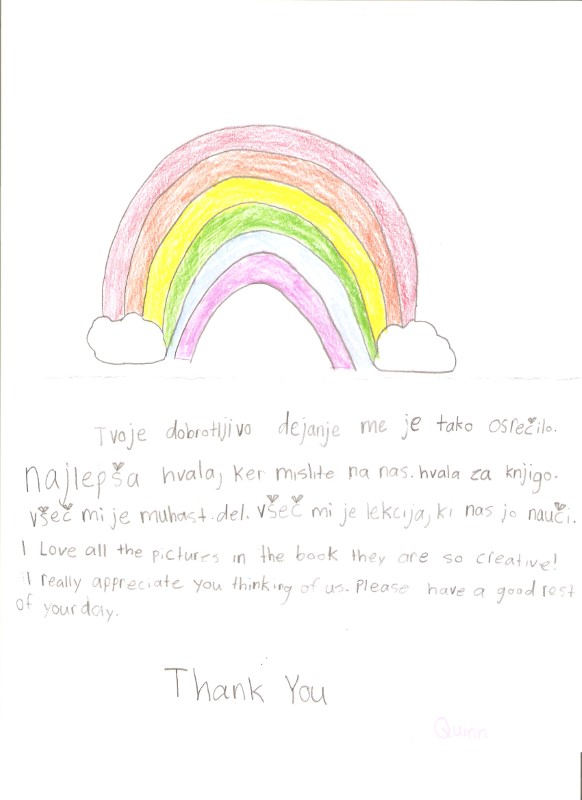 Tvoje dobrotljivo dejanje me je tako osrečilo.
najlepša hvala, ker mislite na nas. hvala za knjigo.
všeč mi je muhast.del. všeč mi je lekcija, ki nas jo nauči.
I Love all the pictures in the book they are so creative!
I really appreciate you thinking of us. Please have a good rest
of your day.
Thank You
Quinn